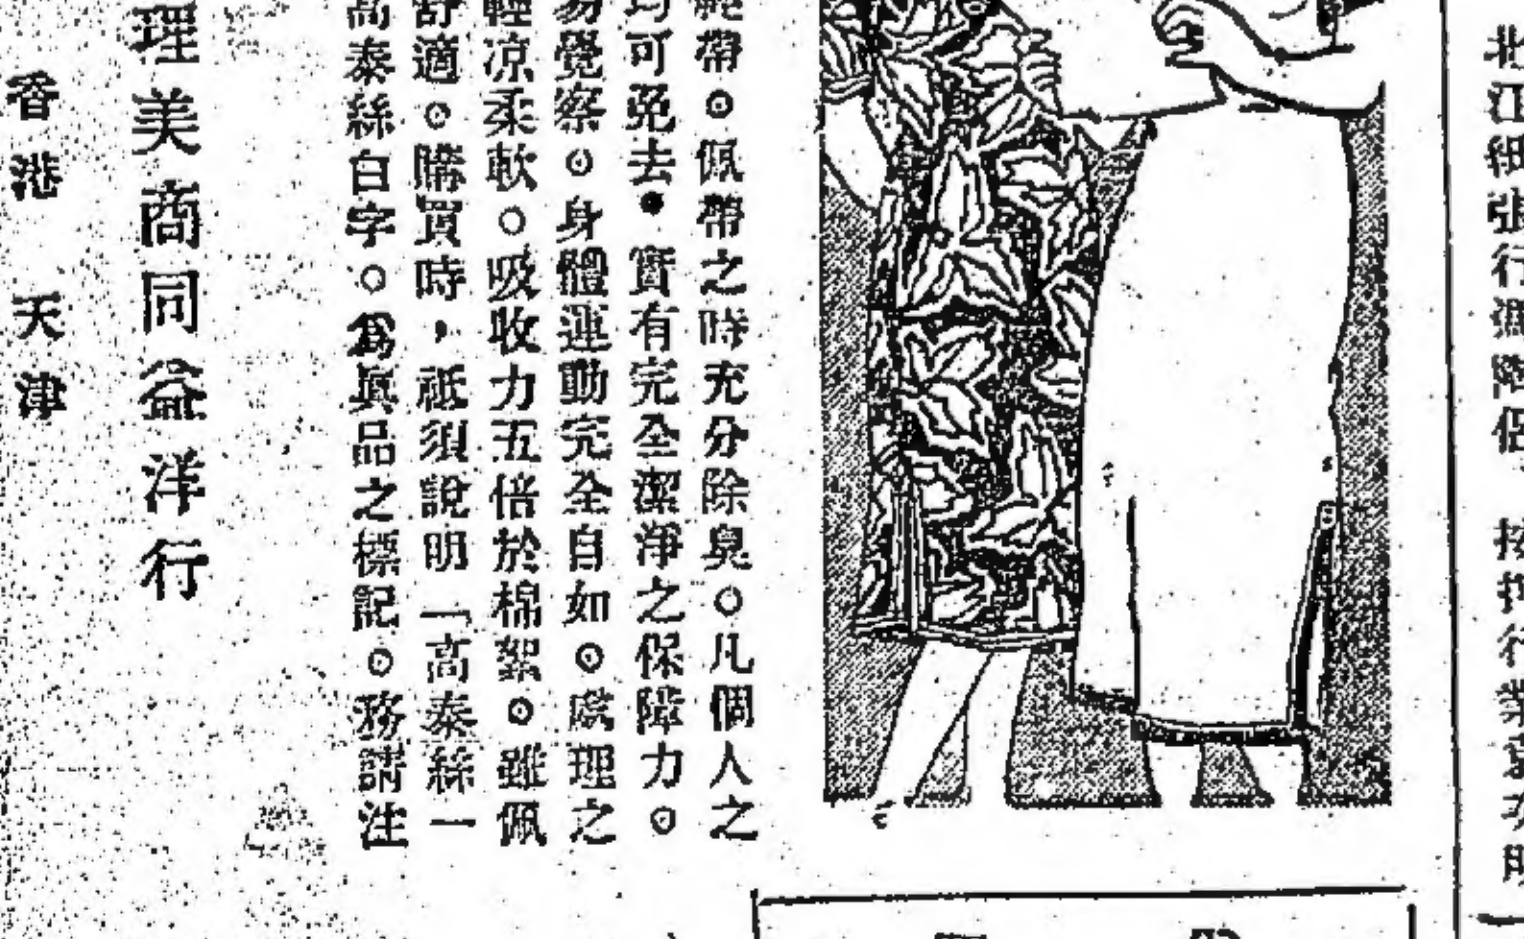 帶。佩帶之時充分除臭。凡個人之
均可免去。實有完全潔淨之保障力。
易覺察。身體運動完全自如。處理之
輕凉柔軟。吸收力五倍於棉絮。雖佩
舒適。購買時，祇須說明「高泰絲一
高泰絲白字。為眞品之標記。務請注
理美商同益洋行
香港 天津
江紙張行
行業